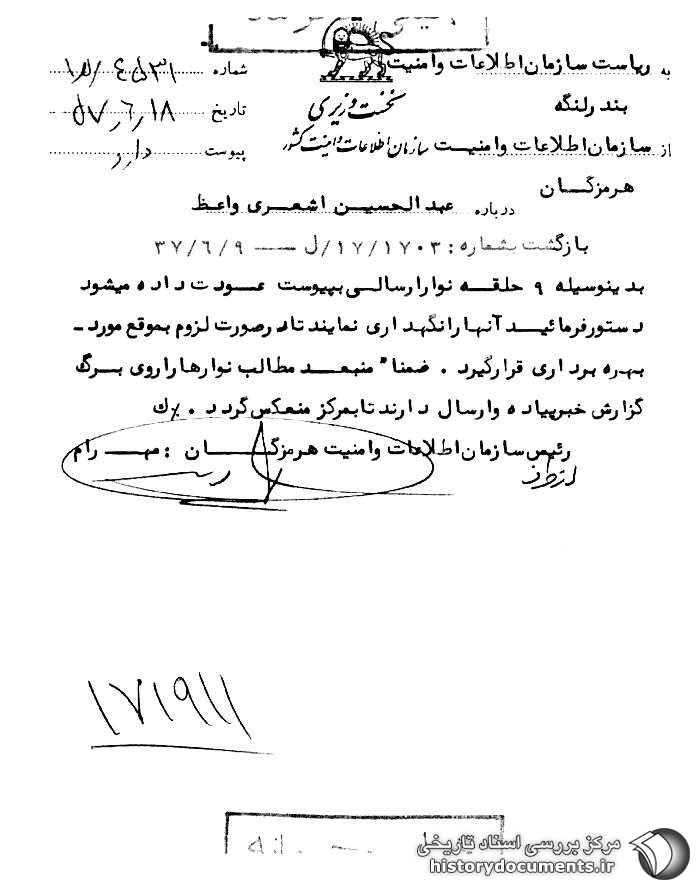 به ریاست سازمان اطلاعات وامنیت
بندرلنگه
از سازمان اطلاعات وامنیت
هرمزگان
نخست وزیری
سازمان اطلاعات وامنیت کشور
شماره ۱۵/۴۵۳۱
تاریخ ۵۷٫۶٫۱۸
پیوست دارد
درباره عبدالحسین اشعری واعظ
بازگشت بشماره: ۱۷/۱۷۰۳/ل — ۳۷/۶/۹
بدینوسیله ۹ حلقه نوارارسالی بپیوست عودت داده میشود
دستورفرمائید آنهارانگهداری نمایند تادرصورت لزوم بموقع مورد-
بهره برداری قرارگیرد . ضمنا" منبعد مطالب نوارهاراروی برگ
گزارش خبرپیاده وارسال دارند تابمرکز منعکس گردد . /ک
رئیس سازمان اطلاعات وامنیت هرمزگان : مهرام
ازطرف
۱۷۱۹۱۱
مرکز بررسی اسناد تاریخی
historydocuments.ir